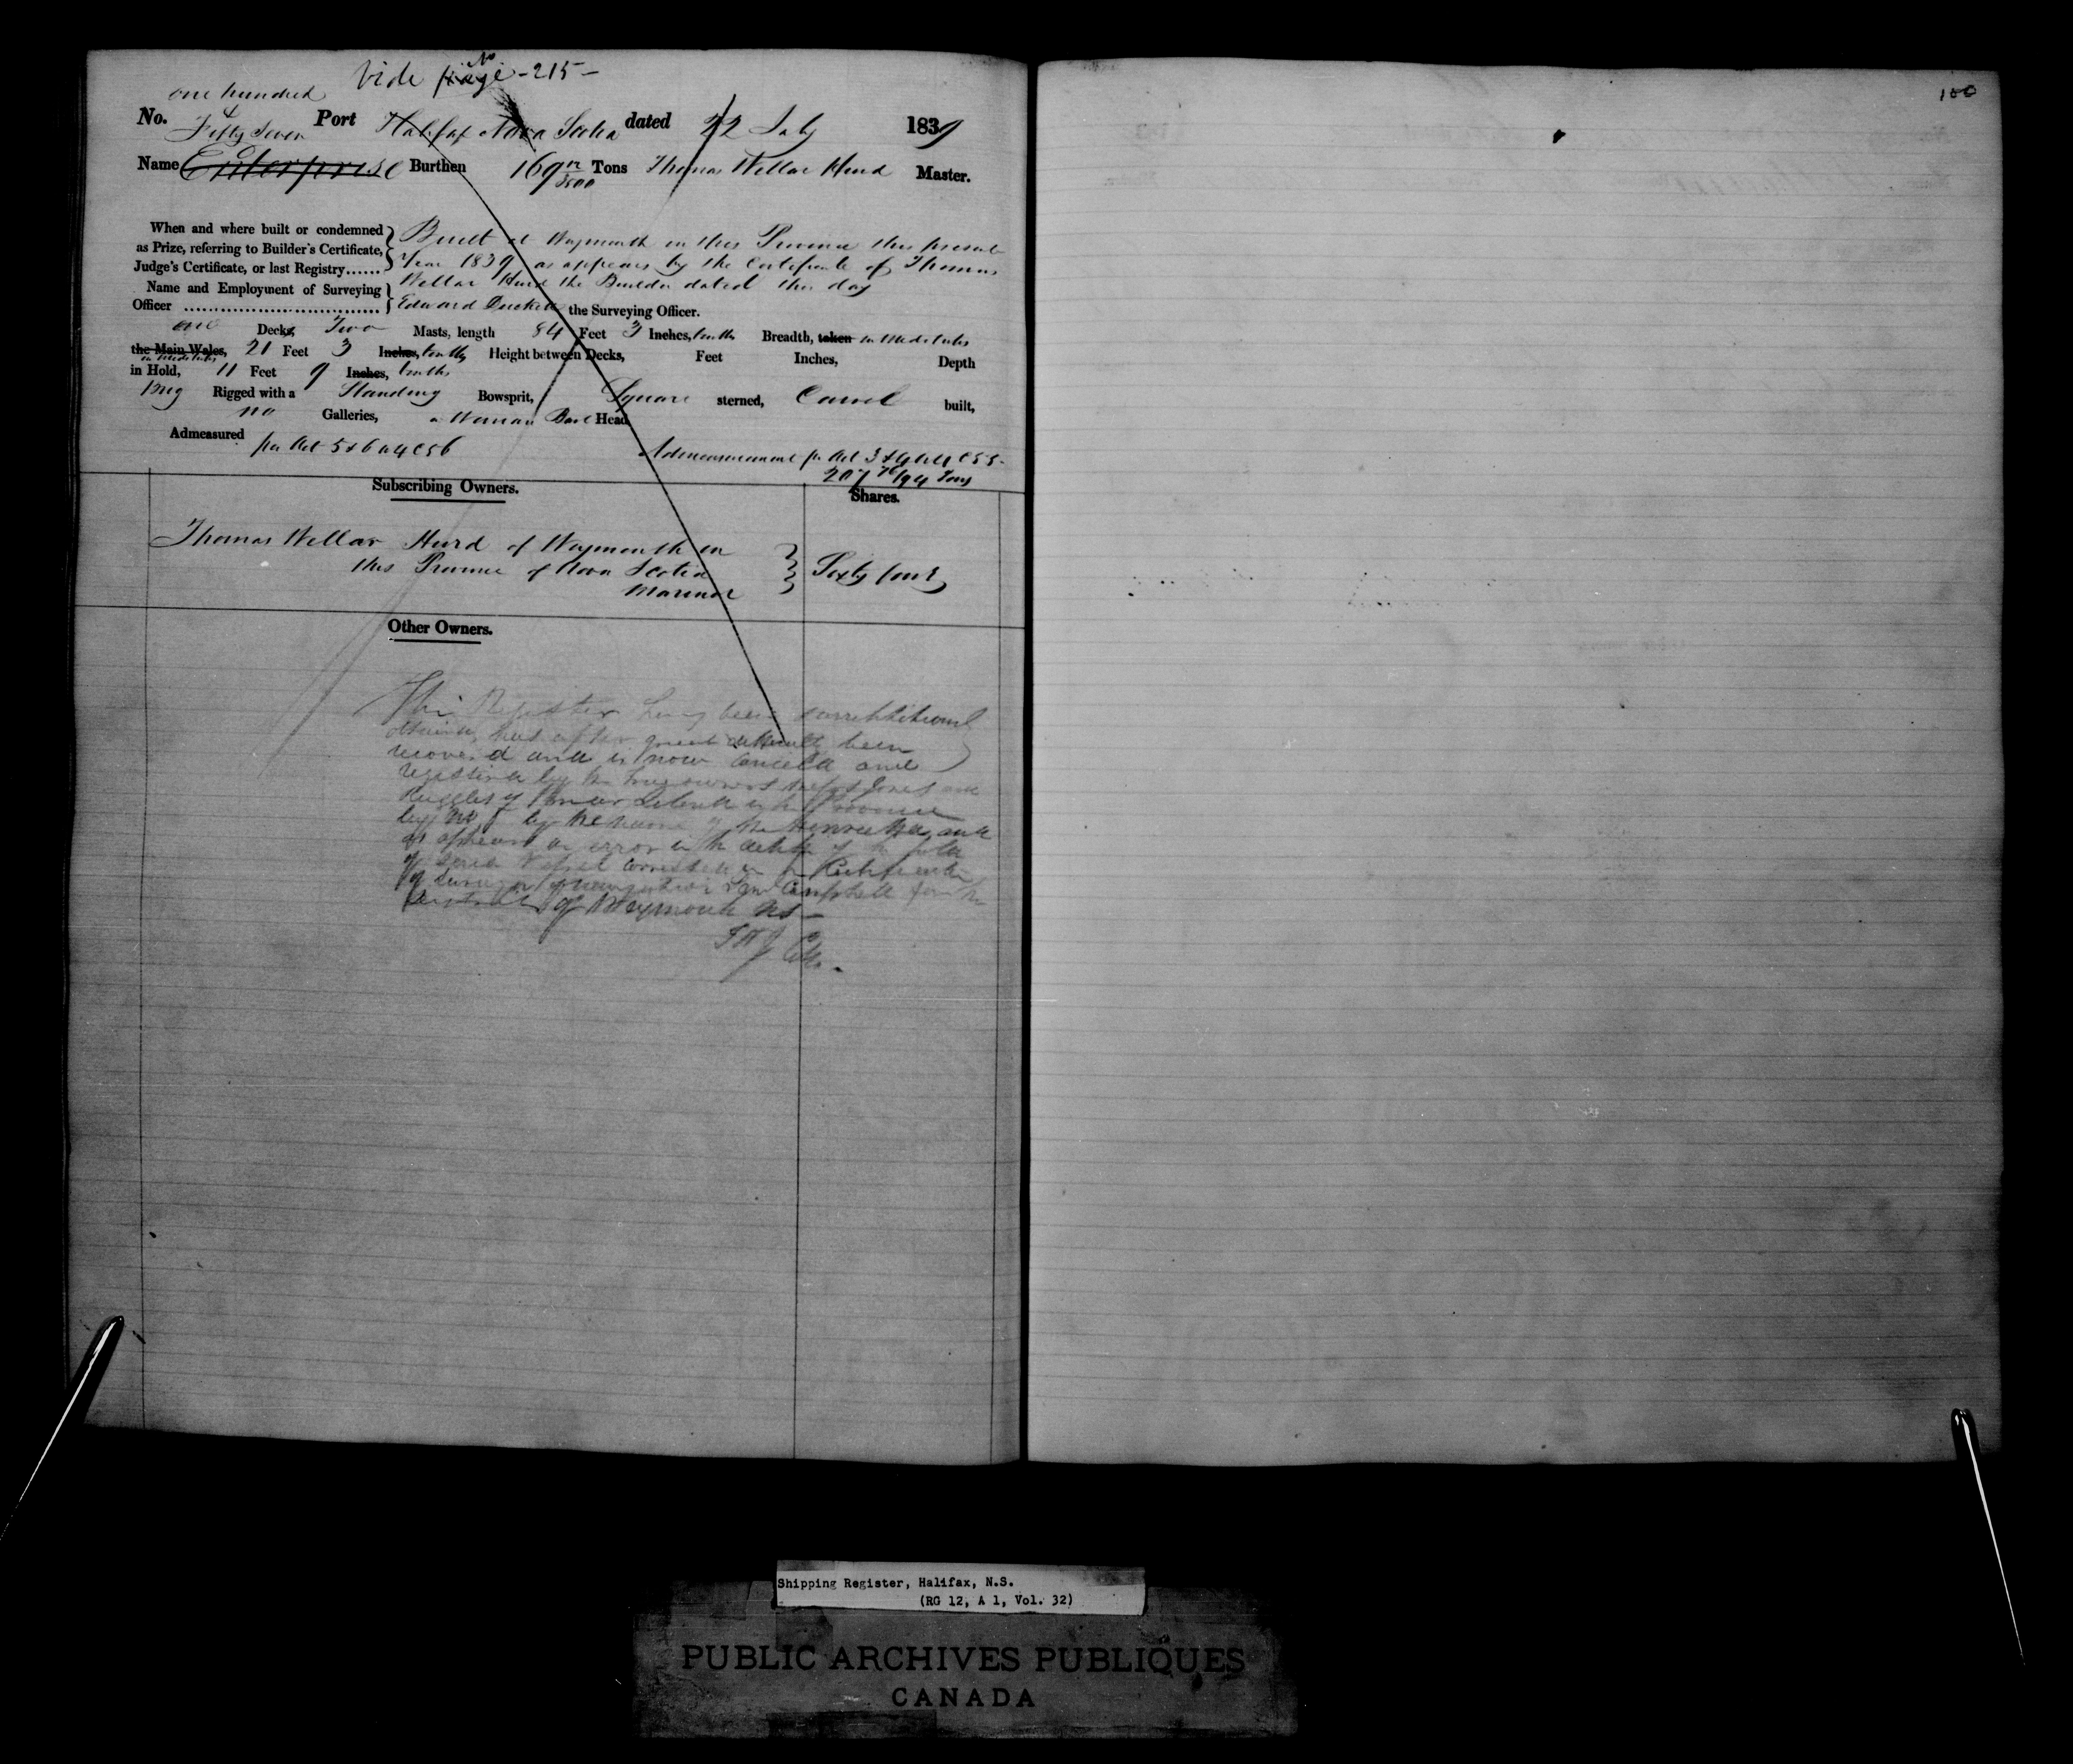 Vide No. -215-
one hundred &
No. Fifty Seven Port Halifax Nova Scotia dated 22 July 1839
Name Enterprise Burthen 169 Tons Thomas Wellar Hurd Master.
When and where built or condemned as Prize, referring to Builder's Certificate, Judge's Certificate, or last Registry......
Built at Weymouth in this Province this present
Year 1839 as appears by the Certificate of Thomas
Wellar Hurd the Builder dated this day
Name and Employment of Surveying Officer
Edward Duckett the Surveying Officer.
one Decks, Two Masts, length 84 Feet 3 Inches, tenths Breadth, taken in Midships
the Main Wales, 21 Feet 3 Inches, tenths Height between Decks, Feet Inches, Depth
in Midships
in Hold, 11 Feet 9 Inches, tenths
Brig Rigged with a Standing Bowsprit, Square sterned, Carvel built,
no Galleries, a Woman Bust Head
Admeasured per Act 5 & 6 W 4 C 56
Admeasurement pr Act 3 & 4 W 4 C 55-
207 /94 Tons
Subscribing Owners. Shares.
Thomas Wellar Hurd of Weymouth in
this Province of Nova Scotia
Mariner
Sixty four
Other Owners.
This Register having been surreptitiously
obtained, has after great difficulty been
recovered and is now cancelld and
Ruggles of Briar Island in the Province
by the name of the Henrietta, and
as appears an error in the
of said Vessel corrected
Campbell for the
of Weymouth NS -
100
Shipping Register, Halifax, N.S.
(RG 12, A 1, Vol. 32)
PUBLIC ARCHIVES PUBLIQUES
CANADA